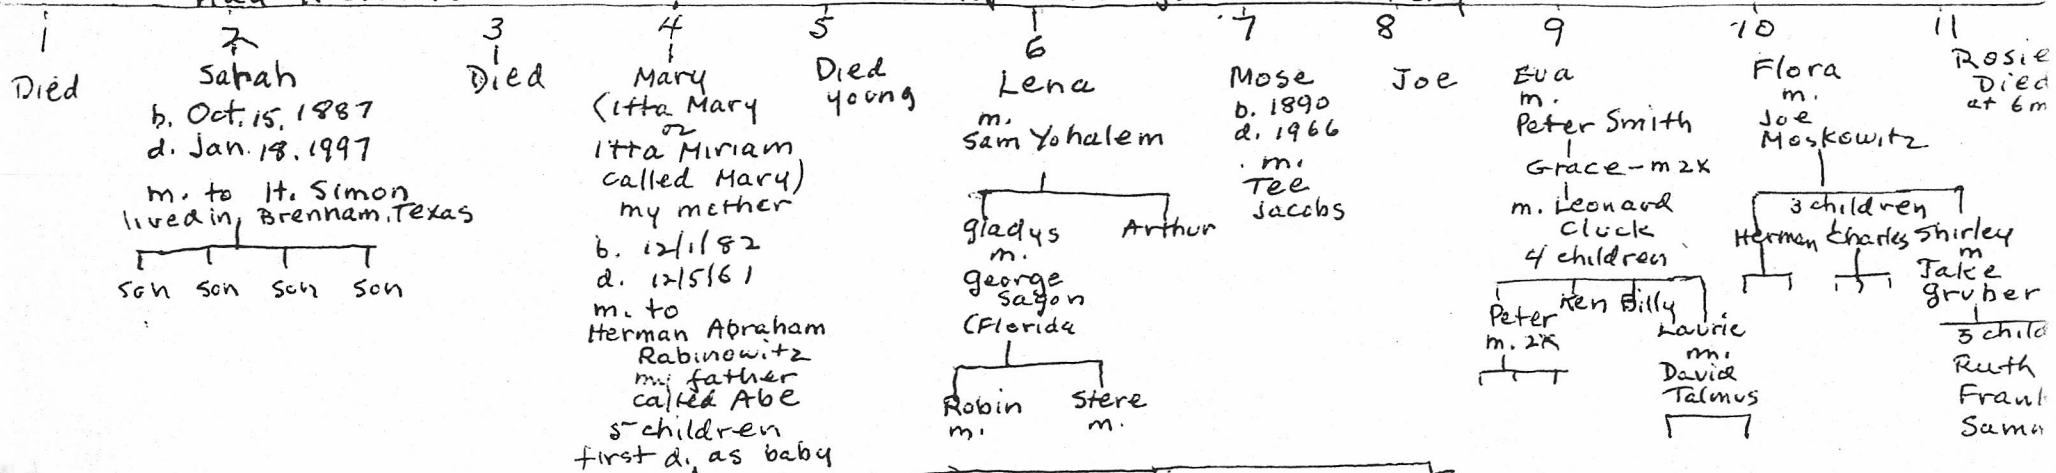 1
Died
2
Sarah
b. Oct. 15, 1887
d. Jan. 18. 1997
m. to H. Simon
lived in, Brennam, Texas
son son son son
3
Died
4
Mary
(Itta Mary
or
Itta Miriam
called Mary)
my mother
b. 12/1/82
d. 12/5/61
m. to
Herman Abraham
Rabinowitz
my father
called Abe
5 children
first d. as baby
5
Died
young
6
Lena
m.
Sam Yohalem
Gladys
m.
George
Sagon
(Florida
Arthur
Robin
m.
Steve
m.
7
Mose
b. 1890
d. 1966
m.
Tee
Jacobs
8
Joe
9
Eva
m.
Peter Smith
Grace - m 2x
m. Leonard
Cluck
4 children
Peter
m. 2x
Ken Billy
Laurie
m.
David
Talmus
10
Flora
m.
Joe
Moskowitz
3 children
Herman Charles Shirley
m
Jake
Gruber
3 child
Ruth
Frank
Sam
11
Rosie
Died
at 6m